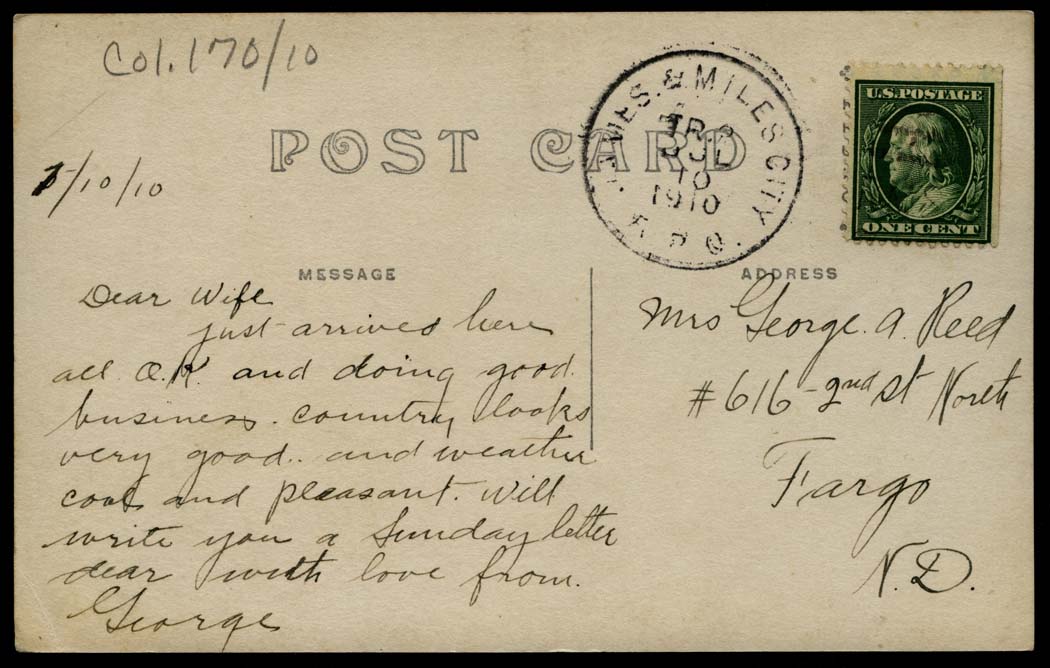 Col. 170/10
POST CARD
& MILES CITY
R.P.O.
TR. 2
JUL
10
1910
U.S. POSTAGE
ONE CENT
/10/10
MESSAGE
Dear Wife
just arrived here
all O.K. and doing good
business. country looks
very good.. and weather
cool and pleasant. Will
write you a Sunday letter
dear with love from.
George
ADDRESS
Mrs George. A. Reed
#616-2nd st North
Fargo
N.D.